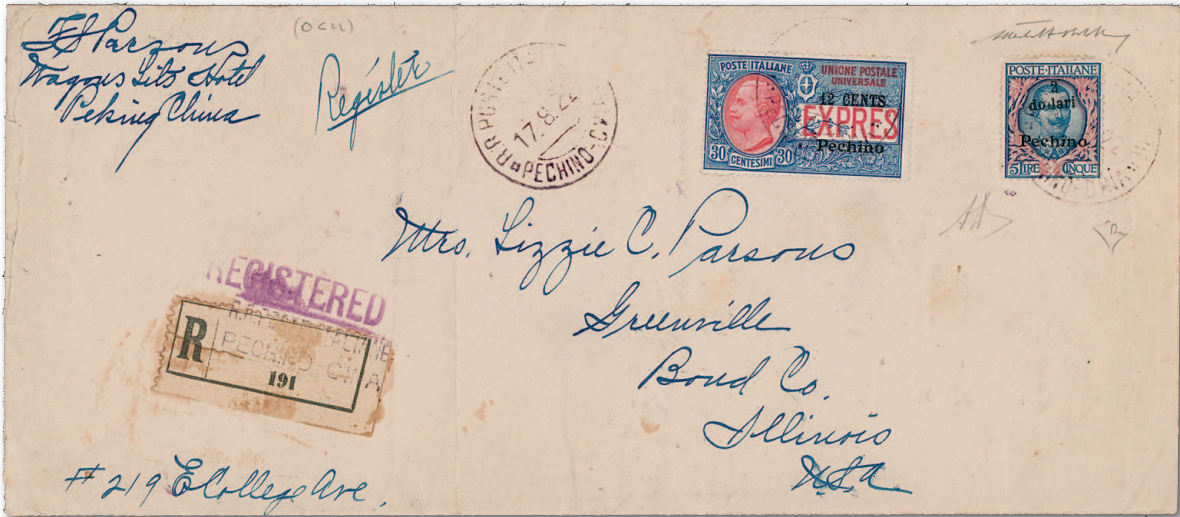 FS Parsons
Waggus Lits Hotel
Peking China
Register
17.8.22
R.R. POSTE
PECHINO-C
POSTE ITALIANE
UNIONE POSTALE
UNIVERSALE
12 CENTS
EXPRES
Pechino
30 CENTESIMI 30
POSTE·ITALIANE
2
dollari
Pechino
5 LIRE CINQUE
Mrs. Lizzie C. Parsons
Greenville
Bond Co.
Illinois
U.S.A.
REGISTERED
R
PECHINO CINA
191
# 219 E College Ave.